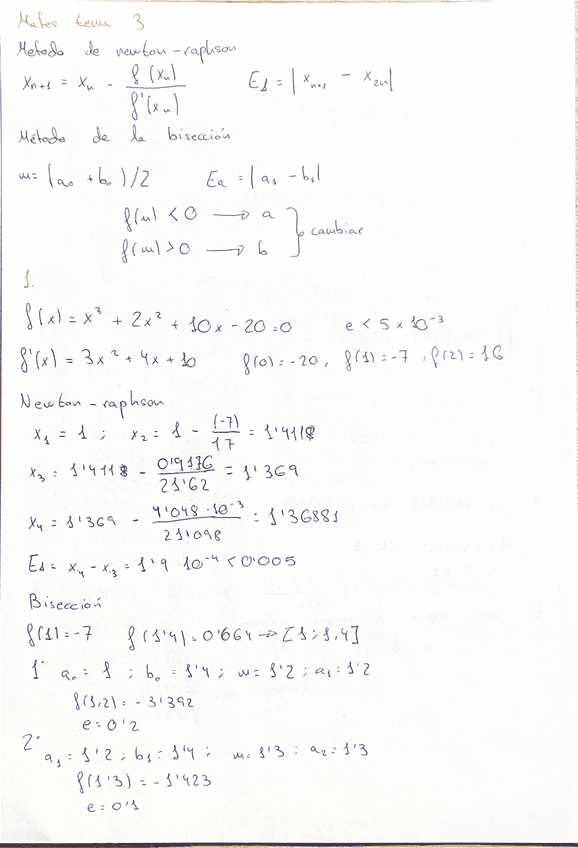 Mates tema 3
Metodo de newton-raphson
x_{n+1} = x_n - f(x_n) / f'(x_n)     E1 = | x_{n+1} - x_{2n} |
Método de la bisección
m = (a_0 + b_0)/2     Ea = |a_1 - b_1|
f(m) < 0 → a
f(m) > 0 → b } cambiar
1.
f(x) = x³ + 2x² + 10x - 20 = 0     e < 5 x 10^{-3}
f'(x) = 3x² + 4x + 10     f(0) = -20, f(1) = -7, f(2) = 16
Newton-raphson
x_1 = 1 ; x_2 = 1 - (-7)/17 = 1'4118
x_3 = 1'4118 - 0'9176/21'62 = 1'369
x_4 = 1'369 - 4'048·10^{-3}/21'098 = 1'36881
E1 = x_4 - x_3 = 1'9·10^{-4} < 0'005
Bisección
f(1) = -7     f(1'4) = 0'664 → [1 ; 1,4]
1· a_0 = 1 ; b_0 = 1'4 ; m = 1'2 ; a_1 = 1'2
f(1,2) = -3'392
e = 0'2
2· a_1 = 1'2 ; b_1 = 1'4 ; m = 1'3 ; a_2 = 1'3
f(1'3) = -1'423
e = 0'1